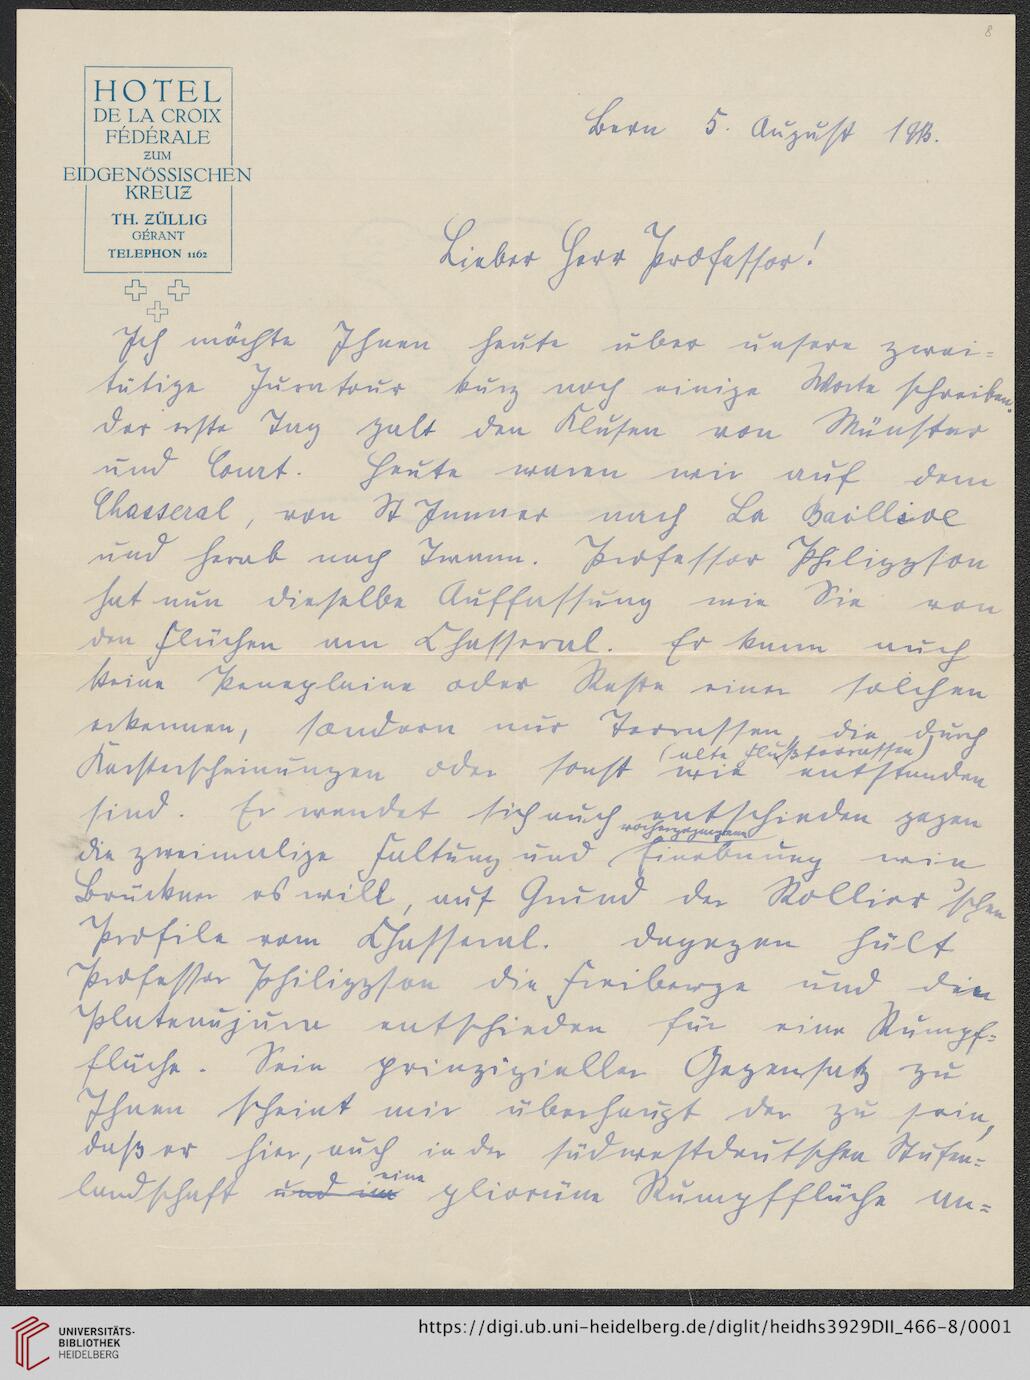 8
HOTEL
DE LA CROIX
FÉDÉRALE
ZUM
EIDGENÖSSISCHEN
KREUZ
TH. ZÜLLIG
GÉRANT
TELEPHON 1162
Bern 5. August 1913.
Lieber Herr Professor!
Ich möchte Ihnen heute über unsere zwei-
tätige Juratour kurz noch einige Worte schreiben.
Der erste Tag galt den Klusen von Münster
und Court. Heute waren wir auf dem
Chasseral, von St Immer nach La
und herab nach Twann. Professor Philippson
hat nun dieselbe Auffassung wie Sie von
den Flächen am Chasseral. Er kann auch
keine Peneplaine oder Reste einer solchen
erkennen, sondern nur Terrassen, die durch
Karsterscheinungen oder sonst wie (alte Flußterrassen) entstanden
sind. Er wendet sich auch entschieden gegen
die zweimalige Faltung und Einebnung wie
Brückner es will, auf Grund der Rollier'schen
Profile vom Chasseral. Dagegen hält
Professor Philippson die Freiberge und den
Plateaujura entschieden für eine Rumpf-
fläche. Sein prinzipieller Gegensatz zu
Ihnen scheint mir überhaupt der zu sein,
daß er hier, auch in der südwestdeutschen Stufen-
landschaft und im eine pliocäne Rumpffläche an-
UNIVERSITÄTS-
BIBLIOTHEK
HEIDELBERG
https://digi.ub.uni-heidelberg.de/diglit/heidhs3929DII_466-8/0001